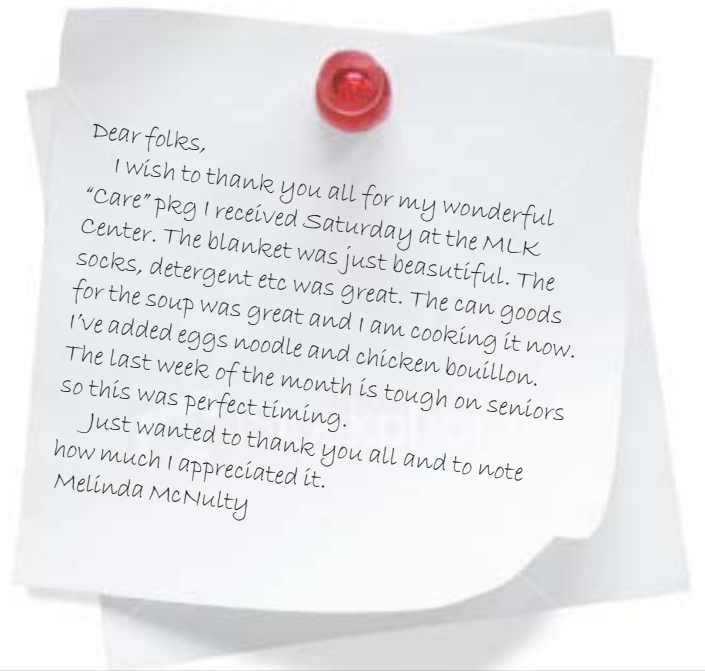 Dear folks,
I wish to thank you all for my wonderful
"Care" pkg I received Saturday at the MLK
Center. The blanket was just beasutiful. The
socks, detergent etc was great. The can goods
for the soup was great and I am cooking it now.
I've added eggs noodle and chicken bouillon.
The last week of the month is tough on seniors
so this was perfect timing.
Just wanted to thank you all and to note
how much I appreciated it.
Melinda McNulty